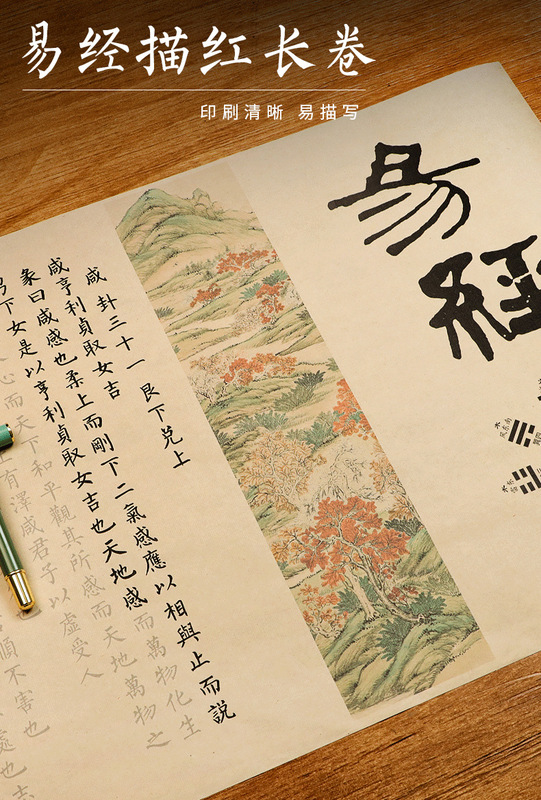 易经描红长卷
印刷清晰 易描写
易
經
咸 卦三十一 艮下兑上
咸亨利貞取女吉
彖曰咸感也柔上而剛下二氣感應以相與止而説
男下女是以亨利貞取女吉也天地感而萬物化生
人心而天下和平觀其所感而天地萬物之
上有澤咸君子以虛受人
順不害也
處也志